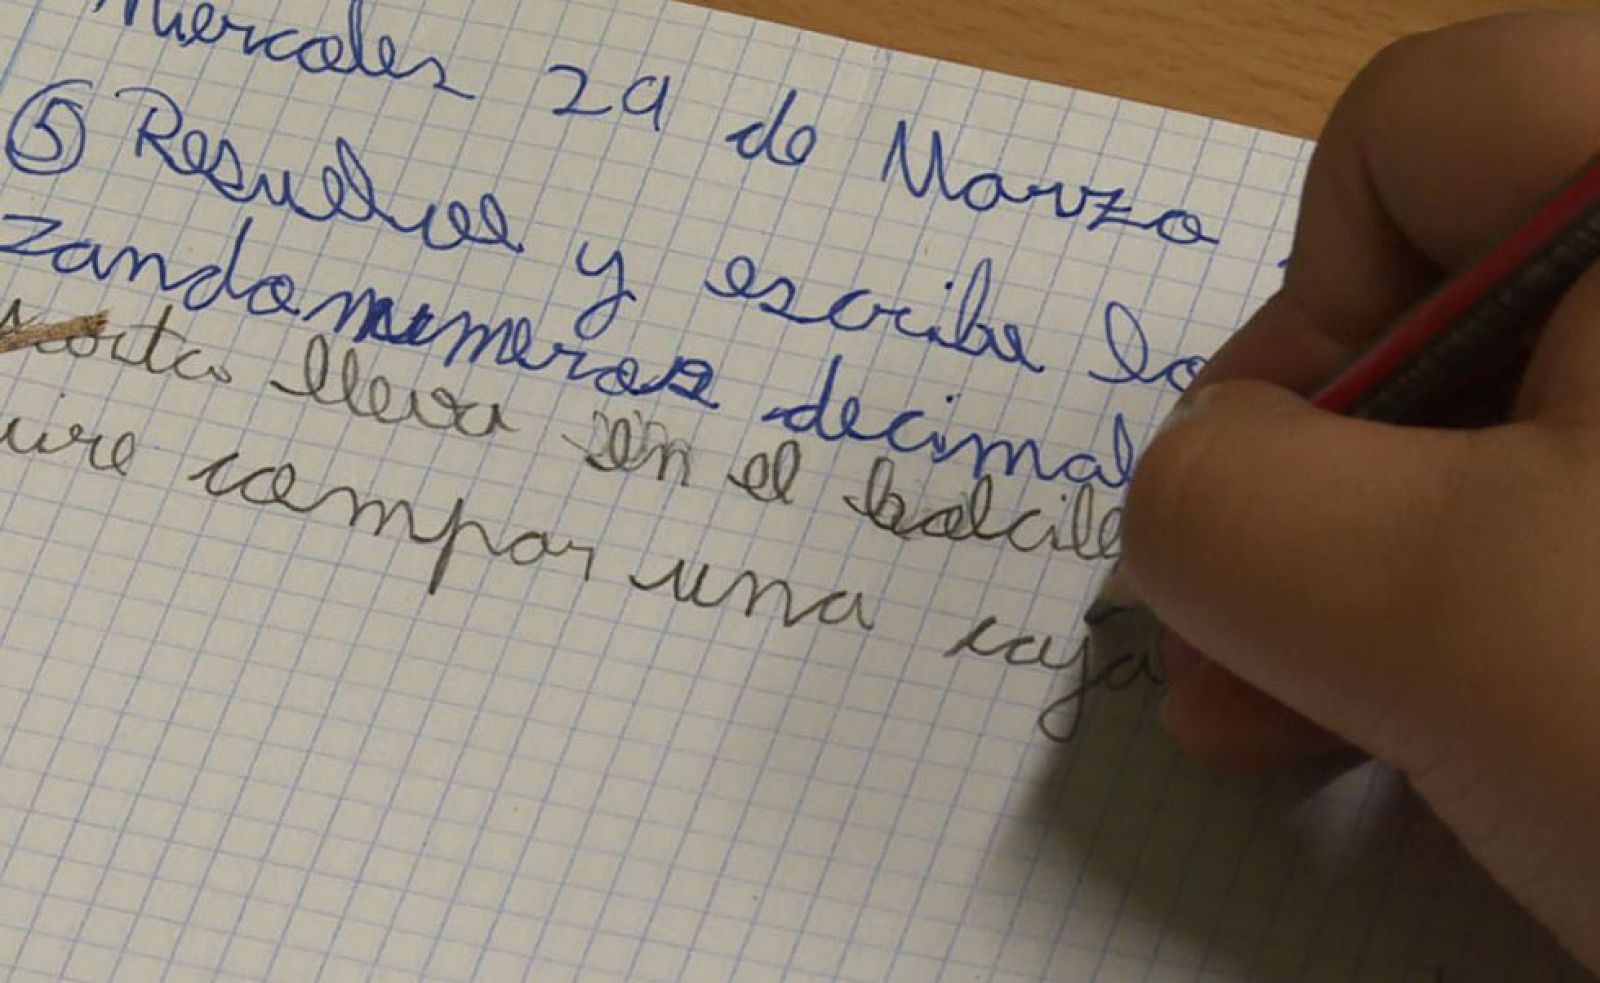 Miercoles 29 de Marzo
⑤ Resuelve y escribe lo
zando numeros decimal
lleva en el bolcill
compar una caja